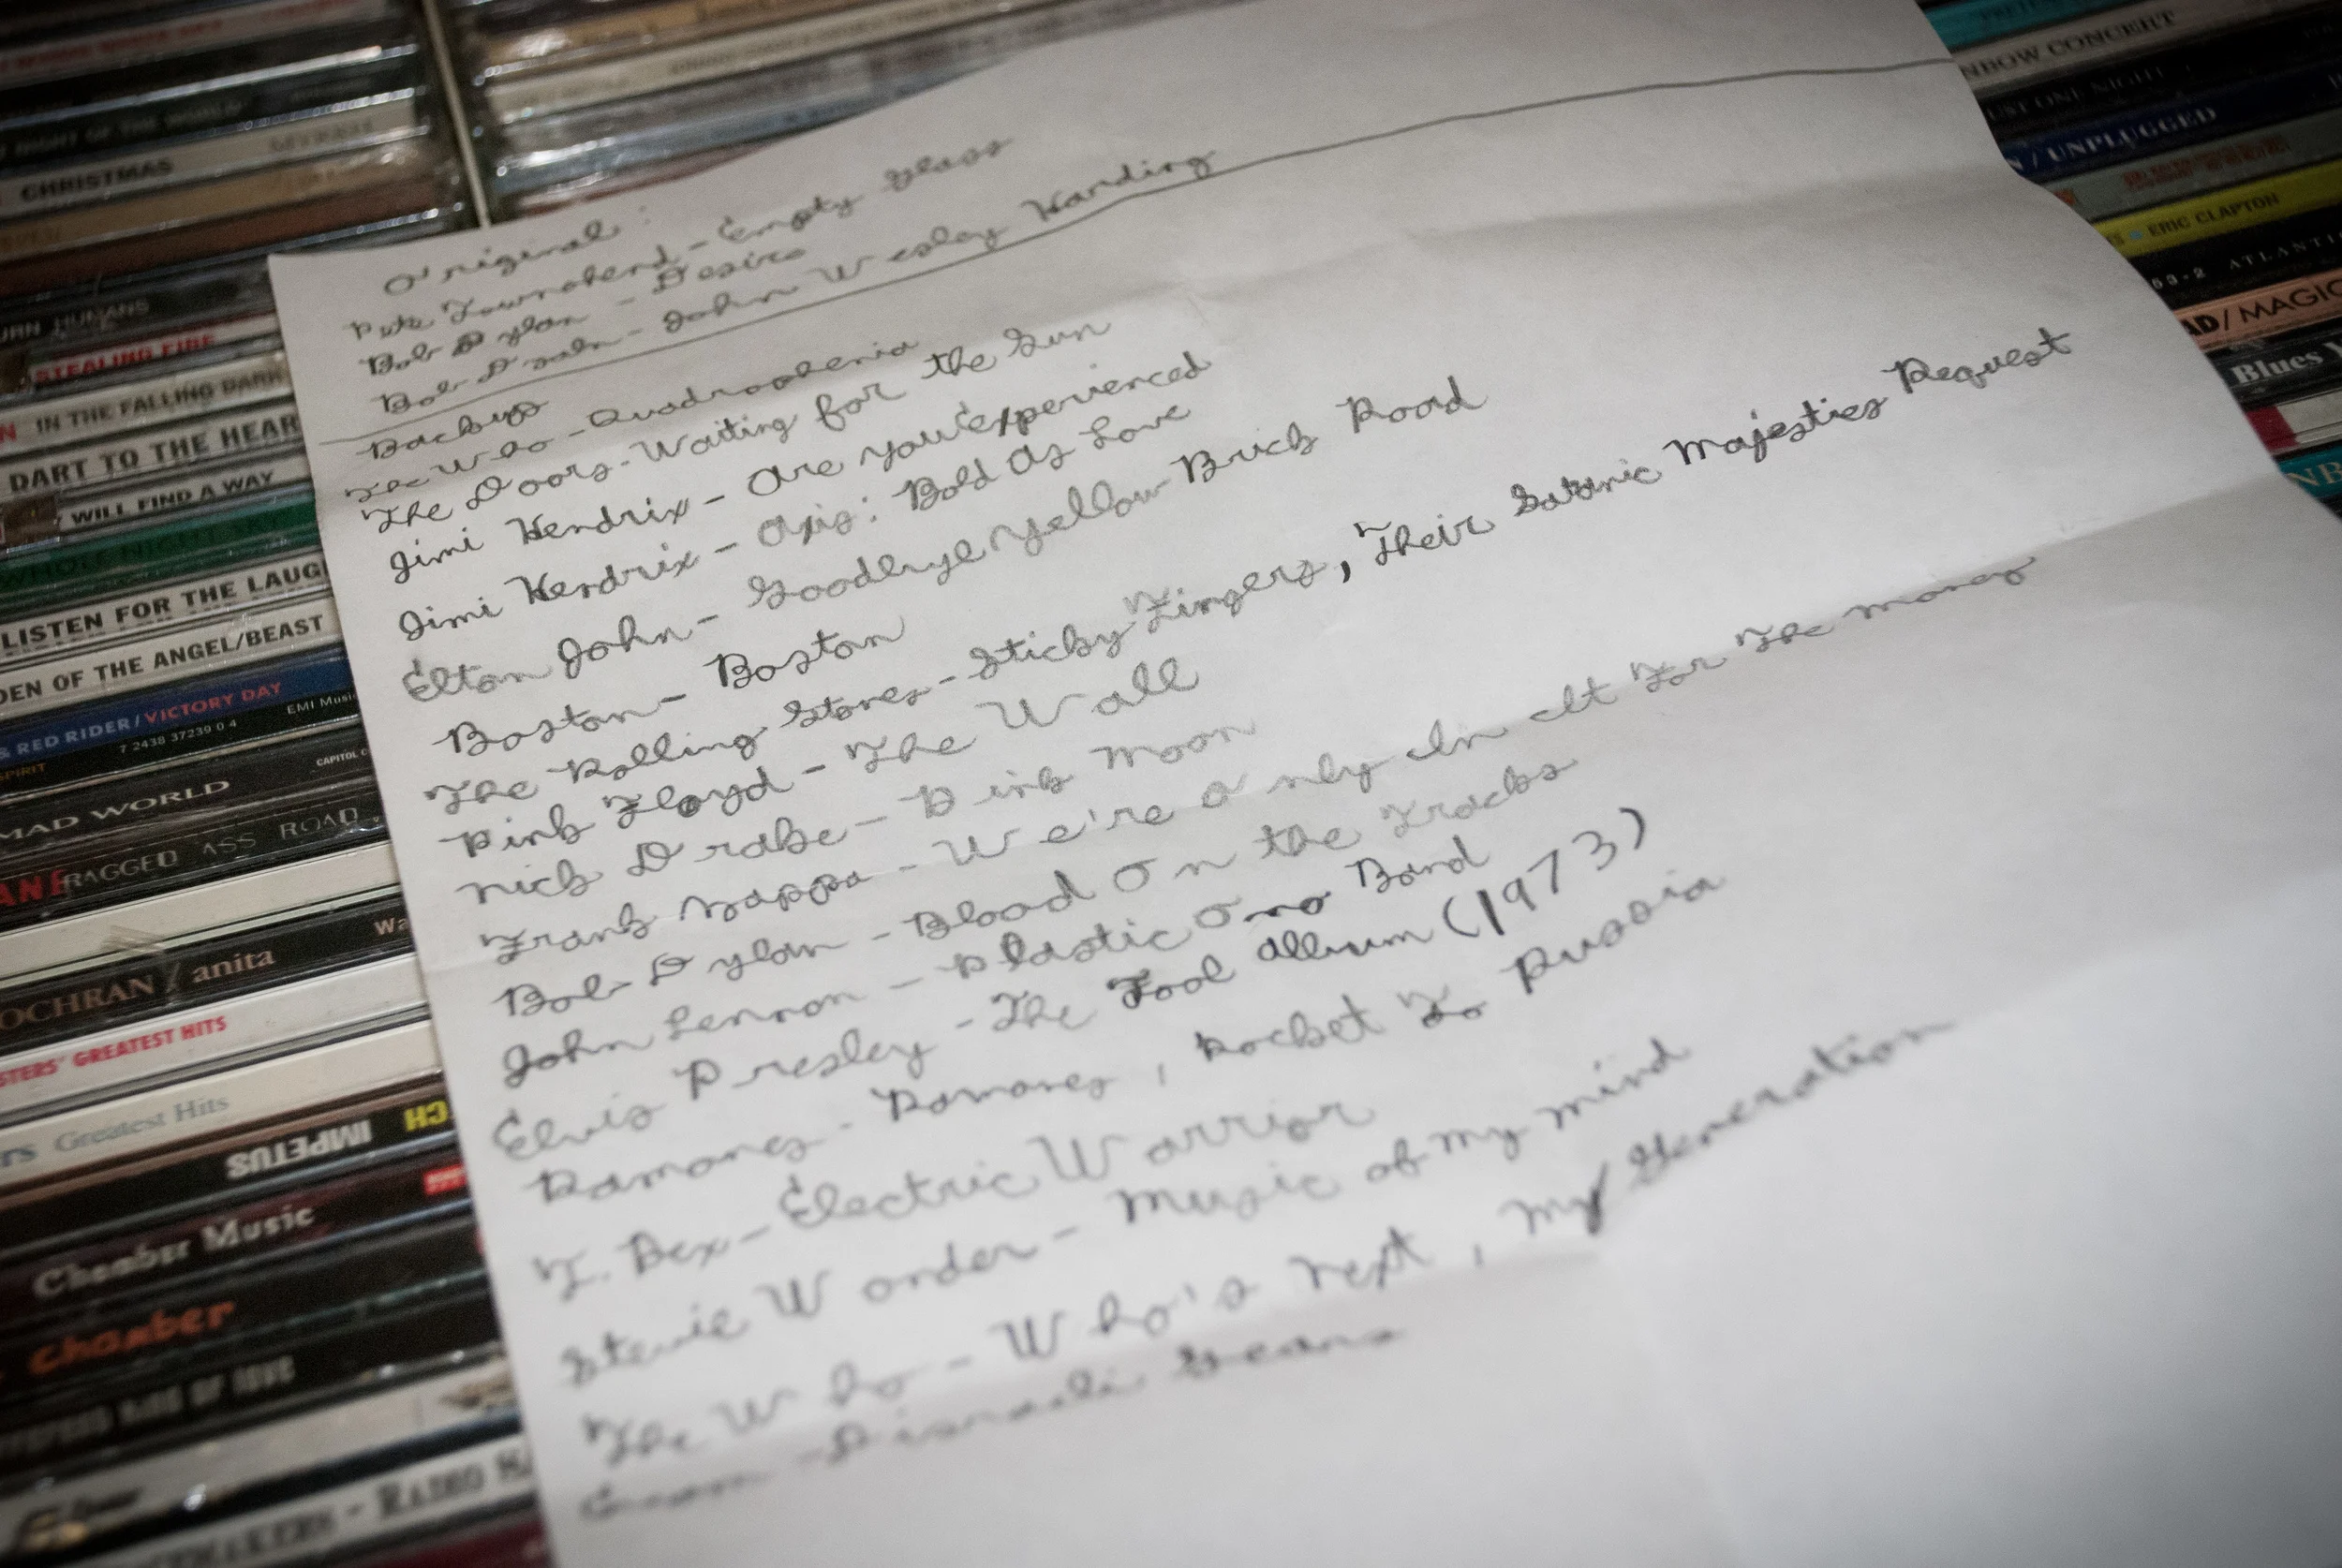 CHRISTMAS
URN HUMANS
STEALING FIRE
IN THE FALLING DARK
DART TO THE HEAR
WILL FIND A WAY
LISTEN FOR THE LAUG
DEN OF THE ANGEL/BEAST
& RED RIDER / VICTORY DAY EMI Musi
7 2438 37239 0 4
SPIRIT
MAD WORLD CAPITOL
RAGGED ASS ROAD
OCHRAN / anita Wa
STERS' GREATEST HITS
rs Greatest Hits
IMPETUS
Chamber Music
chamber
Original:
Pete Townshend - Empty Glass
Bob Dylan - Desire
Bob Dylan - John Wesley Harding
Backups
The Who - Quadrophenia
The Doors - Waiting for the Sun
Jimi Hendrix - Are You Experienced
Jimi Hendrix - Axis: Bold As Love
Elton John - Goodbye Yellow Brick Road
Boston - Boston
The Rolling Stones - Sticky Fingers, Their Satanic Majesties Request
Pink Floyd - The Wall
Nick Drake - Pink Moon
Frank Zappa - We're Only In It For The Money
Bob Dylan - Blood On the Tracks
John Lennon - Plastic Ono Band
Elvis Presley - The Fool Album (1973)
Ramones - Ramones, Rocket To Russia
T. Rex - Electric Warrior
Stevie Wonder - Music of My Mind
The Who - Who's Next, My Generation
Cream - Disraeli Gears
NBOW CONCERT
JUST ONE NIGHT
N / UNPLUGGED
ERIC CLAPTON
53-2 ATLANTI
AD/MAGIC
Blues